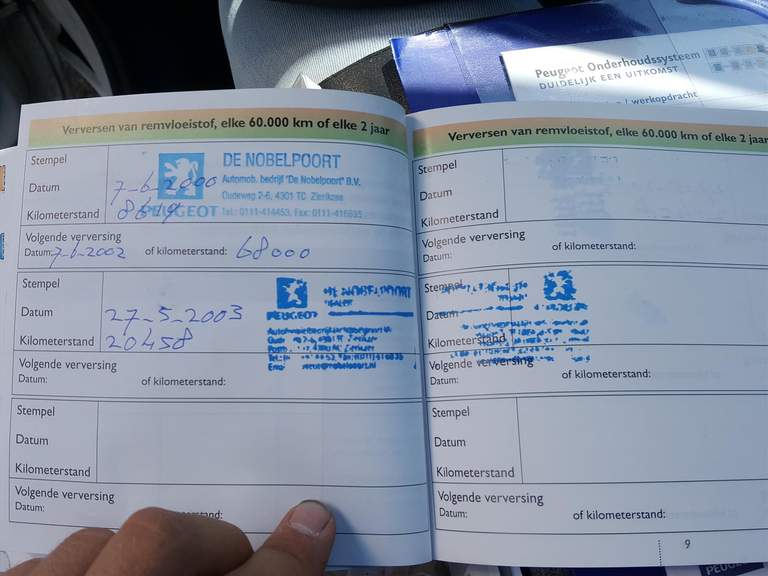 Peugeot Onderhoudssysteem
DUIDELIJK EEN UITKOMST
/ werkopdracht
Verversen van remvloeistof, elke 60.000 km of elke 2 jaar
Stempel
DE NOBELPOORT
Automob. bedrijf "De Nobelpoort" B.V.
Datum
7-6-2000
Oudeweg 2-6, 4301 TC Zierikzee
Kilometerstand
PEUGEOT Tel.: 0111-414453. Fax: 0111-416635
Volgende verversing
Datum: 7-6-2002 of kilometerstand: 68000
Stempel
DE NOBELPOORT
DEALER
Datum
27-5-2003
PEUGEOT
Kilometerstand
20458
Volgende verversing
Datum:
of kilometerstand:
Stempel
Datum
Kilometerstand
Volgende verversing
Datum:
Verversen van remvloeistof, elke 60.000 km of elke 2 jaar
Stempel
Datum
Kilometerstand
Volgende verversing
Datum:
of kilometerstand:
Stempel
Datum
Kilometerstand
Volgende verversing
Datum:
of kilometerstand:
Stempel
Datum
Kilometerstand
Volgende verversing
Datum:
of kilometerstand:
9